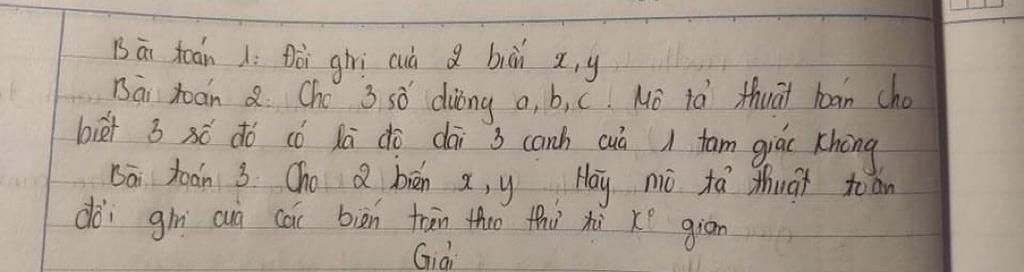 Bài toán 1: Đổi ghị cuả 2 biến x, y
Bài toán 2: Cho 3 số dương a, b, c. Mô tả thuật toán cho
biết 3 số đó có là độ dài 3 cạnh cuả 1 tam giác không
Bài toán 3: Cho 2 biến x, y Hãy mô tả thuật toán
đổi ghị cuả các biến trên theo thứ tự k° giản
Giải